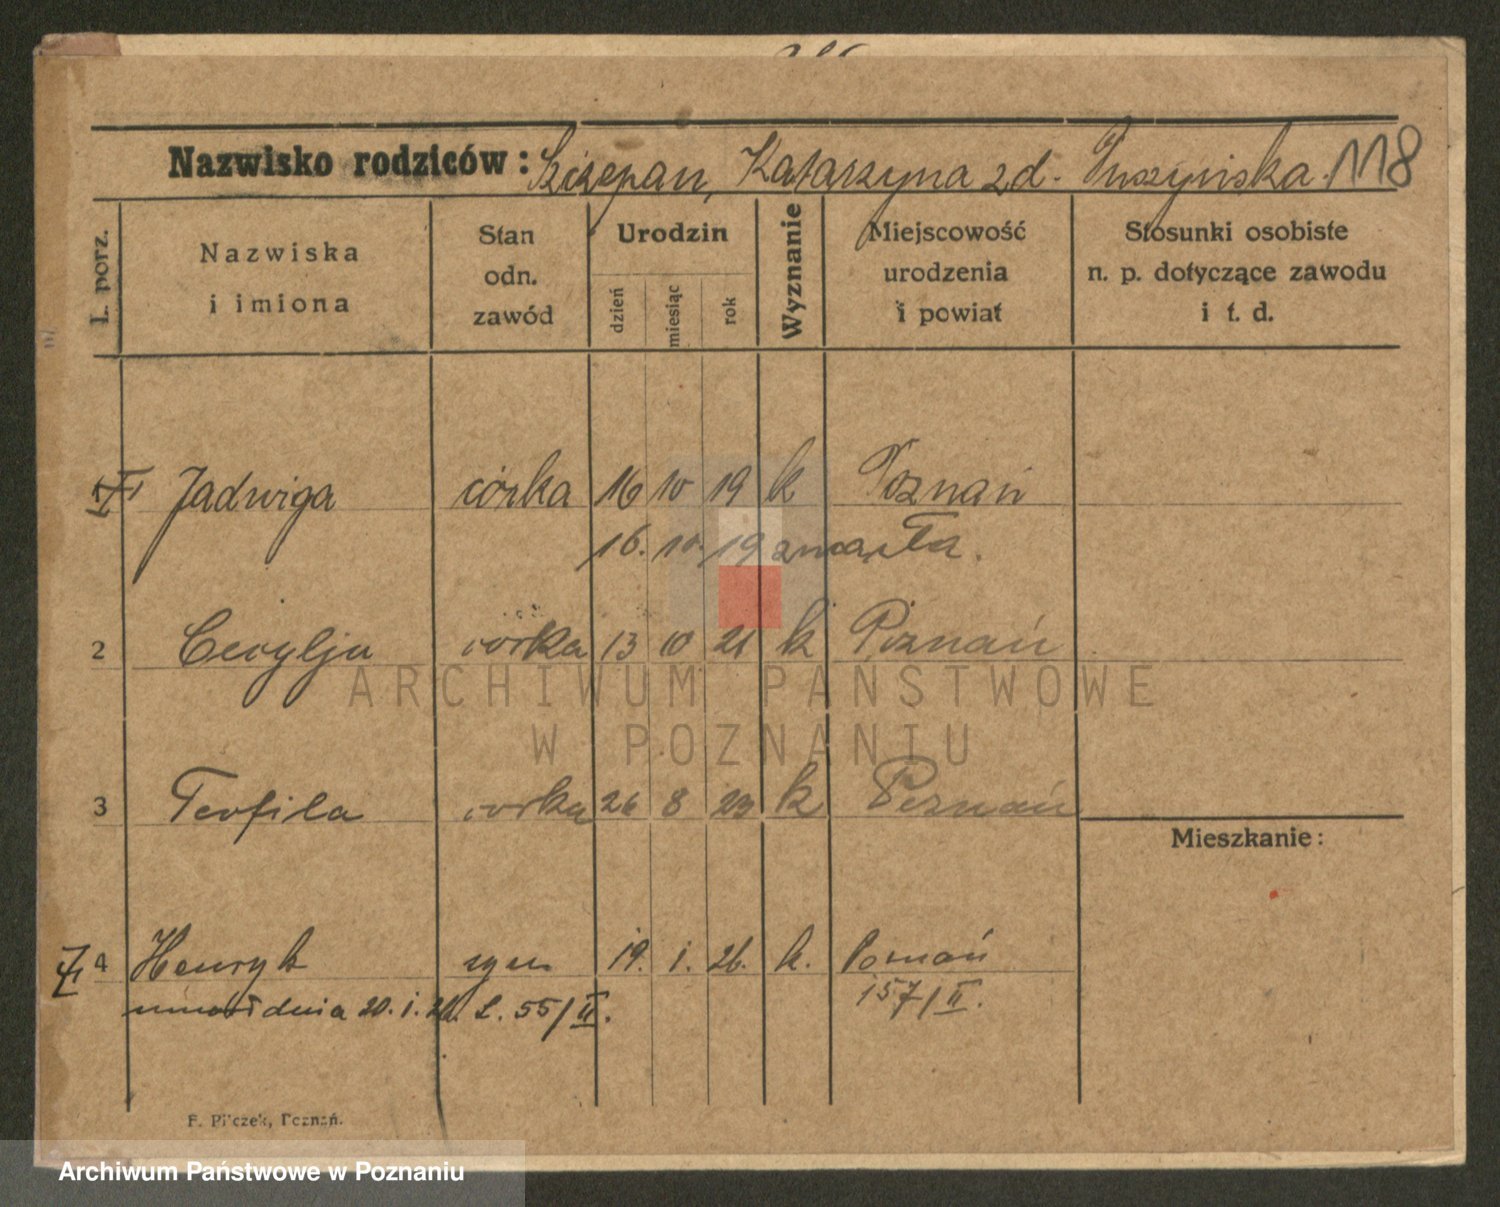 Nazwisko rodziców: Szczepan, Katarzyna z d. 118
L. porz.
Nazwiska i imiona
Stan odn. zawód
Urodzin
dzień
miesiąc
rok
Wyznanie
Miejscowość urodzenia i powiat
Stosunki osobiste n. p. dotyczące zawodu i t. d.
1 Jadwiga córka 16 10 19 k Poznań
16. 10. 19 zmarła.
2 Cecylja córka 13 10 21 k Poznań
ARCHIWUM PAŃSTWOWE
W POZNANIU
3 Teofila córka 26 8 23 k Poznań
Mieszkanie:
4 Henryk syn 19. 1. 26. k. Poznań
umarł dnia 20. 1. 26. L. 55/II.
157/II.
F. Pilczek, Poznań.
Archiwum Państwowe w Poznaniu